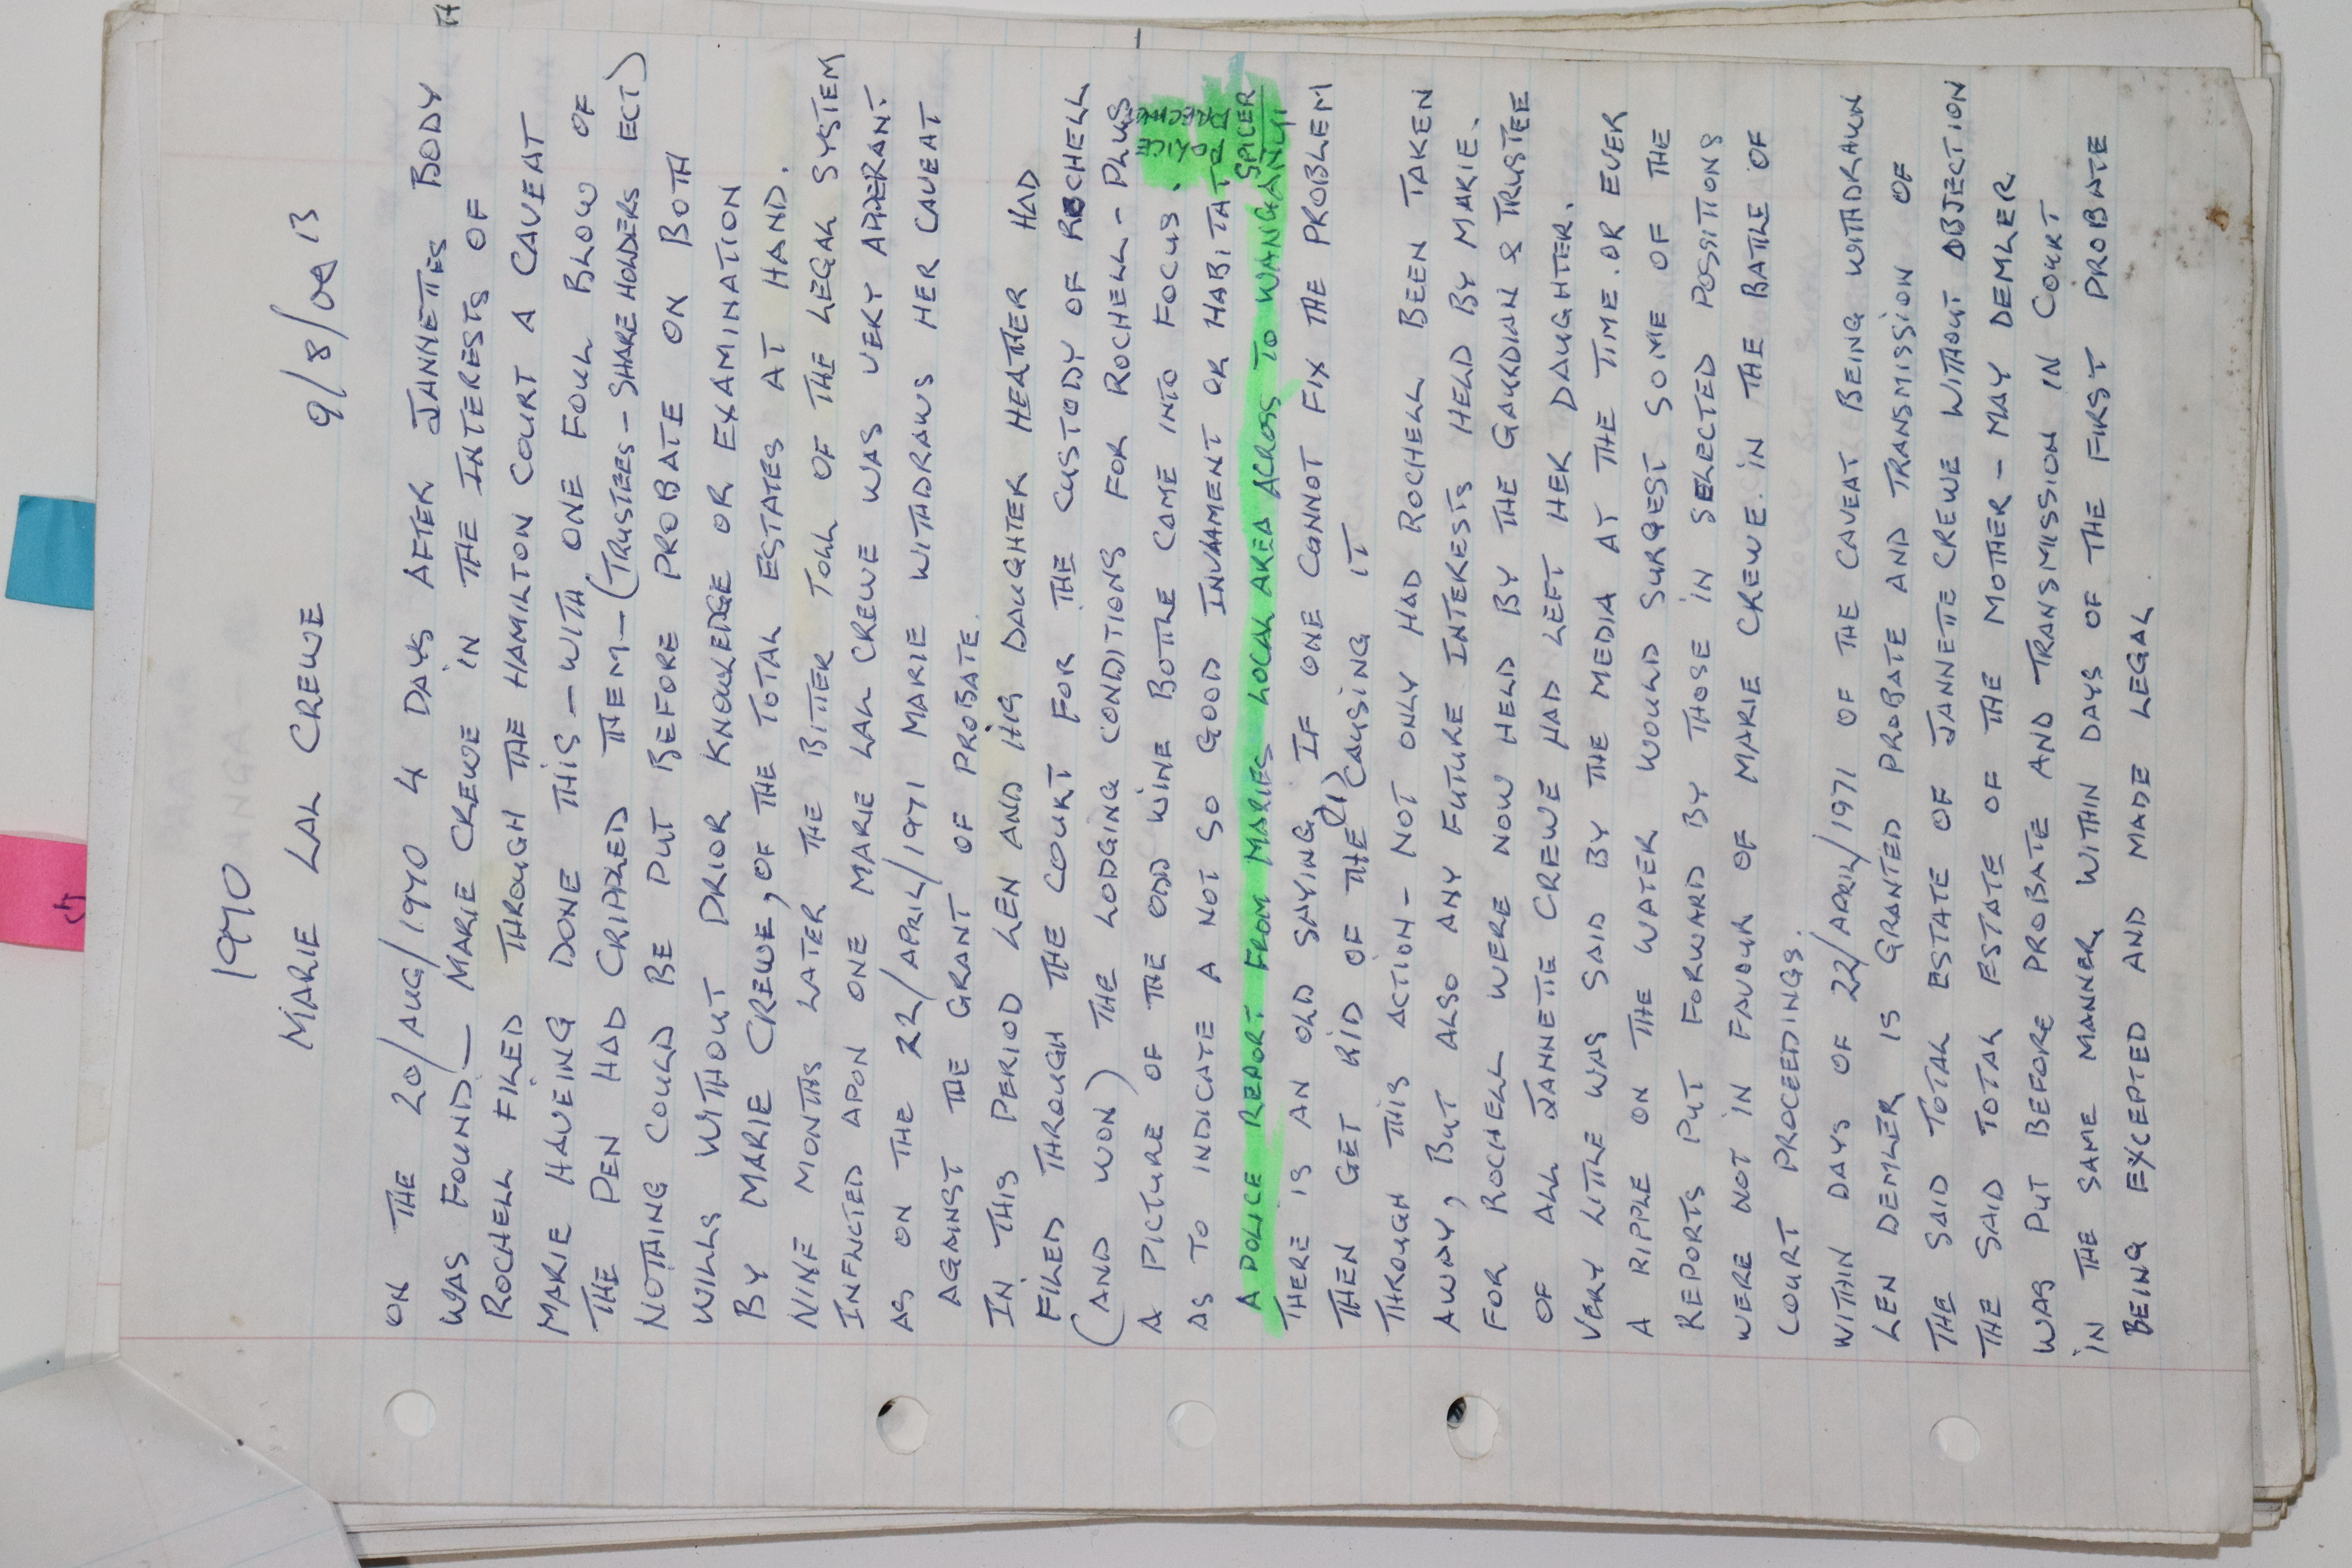 1970
MARIE LAL CREWE 9/8/09 13
ON THE 20/AUG/1970 4 DAYS AFTER JANNETTES BODY
WAS FOUND - MARIE CREWE IN THE INTERESTS OF
ROCHELL FILED THROUGH THE HAMILTON COURT A CAVEAT
MARIE HAVEING DONE THIS - WITH ONE FOUL BLOW OF
THE PEN HAD CRIPPLED THEM - (TRUSTEES - SHARE HOLDERS ECT)
NOTHING COULD BE PUT BEFORE PROBATE ON BOTH
WILLS WITHOUT PRIOR KNOWLEDGE OR EXAMINATION
BY MARIE CREWE, OF THE TOTAL ESTATES AT HAND.
NINE MONTHS LATER THE BITTER TOLL OF THE LEGAL SYSTEM
INFLICTED APON ONE MARIE LAL CREWE WAS VERY APPERANT
AS ON THE 22/APRIL/1971 MARIE WITHDRAWS HER CAVEAT
AGAINST THE GRANT OF PROBATE.
IN THIS PERIOD LEN AND HIS DAUGHTER HEATHER HAD
FILED THROUGH THE COURT FOR THE CUSTODY OF ROCHELL
(AND WON) THE LODGING CONDITIONS FOR ROCHELL - PLUS
A PICTURE OF THE ODD WINE BOTTLE CAME INTO FOCUS.
AS TO INDICATE A NOT SO GOOD INVAMENT OR HABITAT
POLICE
SPICER
A POLICE REPORT FROM MARIES LOCAL AREA ACROSS TO WANGANUI
THERE IS AN OLD SAYING, IF ONE CANNOT FIX THE PROBLEM
THEN GET RID OF THE (1) CAUSING IT
THROUGH THIS ACTION - NOT ONLY HAD ROCHELL BEEN TAKEN
AWAY, BUT ALSO ANY FUTURE INTERESTS HELD BY MARIE.
FOR ROCHELL WERE NOW HELD BY THE GAURDIAN & TRUSTEE
OF ALL JANNETTE CREWE HAD LEFT HER DAUGHTER.
VERY LITTLE WAS SAID BY THE MEDIA AT THE TIME. OR EVER
A RIPPLE ON THE WATER WOULD SURGEST SOME OF THE
REPORTS PUT FORWARD BY THOSE IN SELECTED POSSITIONS
WERE NOT IN FAVOUR OF MARIE CREWE. IN THE BATTLE OF
COURT PROCEEDINGS.
WITHIN DAYS OF 22/APRIL/1971 OF THE CAVEAT BEING WITHDRAWN
LEN DEMLER IS GRANTED PROBATE AND TRANSMISSION OF
THE SAID TOTAL ESTATE OF JANNETTE CREWE WITHOUT OBJECTION
THE SAID TOTAL ESTATE OF THE MOTHER - MAY DEMLER
WAS PUT BEFORE PROBATE AND TRANSMISSION IN COURT
IN THE SAME MANNER, WITHIN DAYS OF THE FIRST PROBATE
BEING EXCEPTED AND MADE LEGAL.